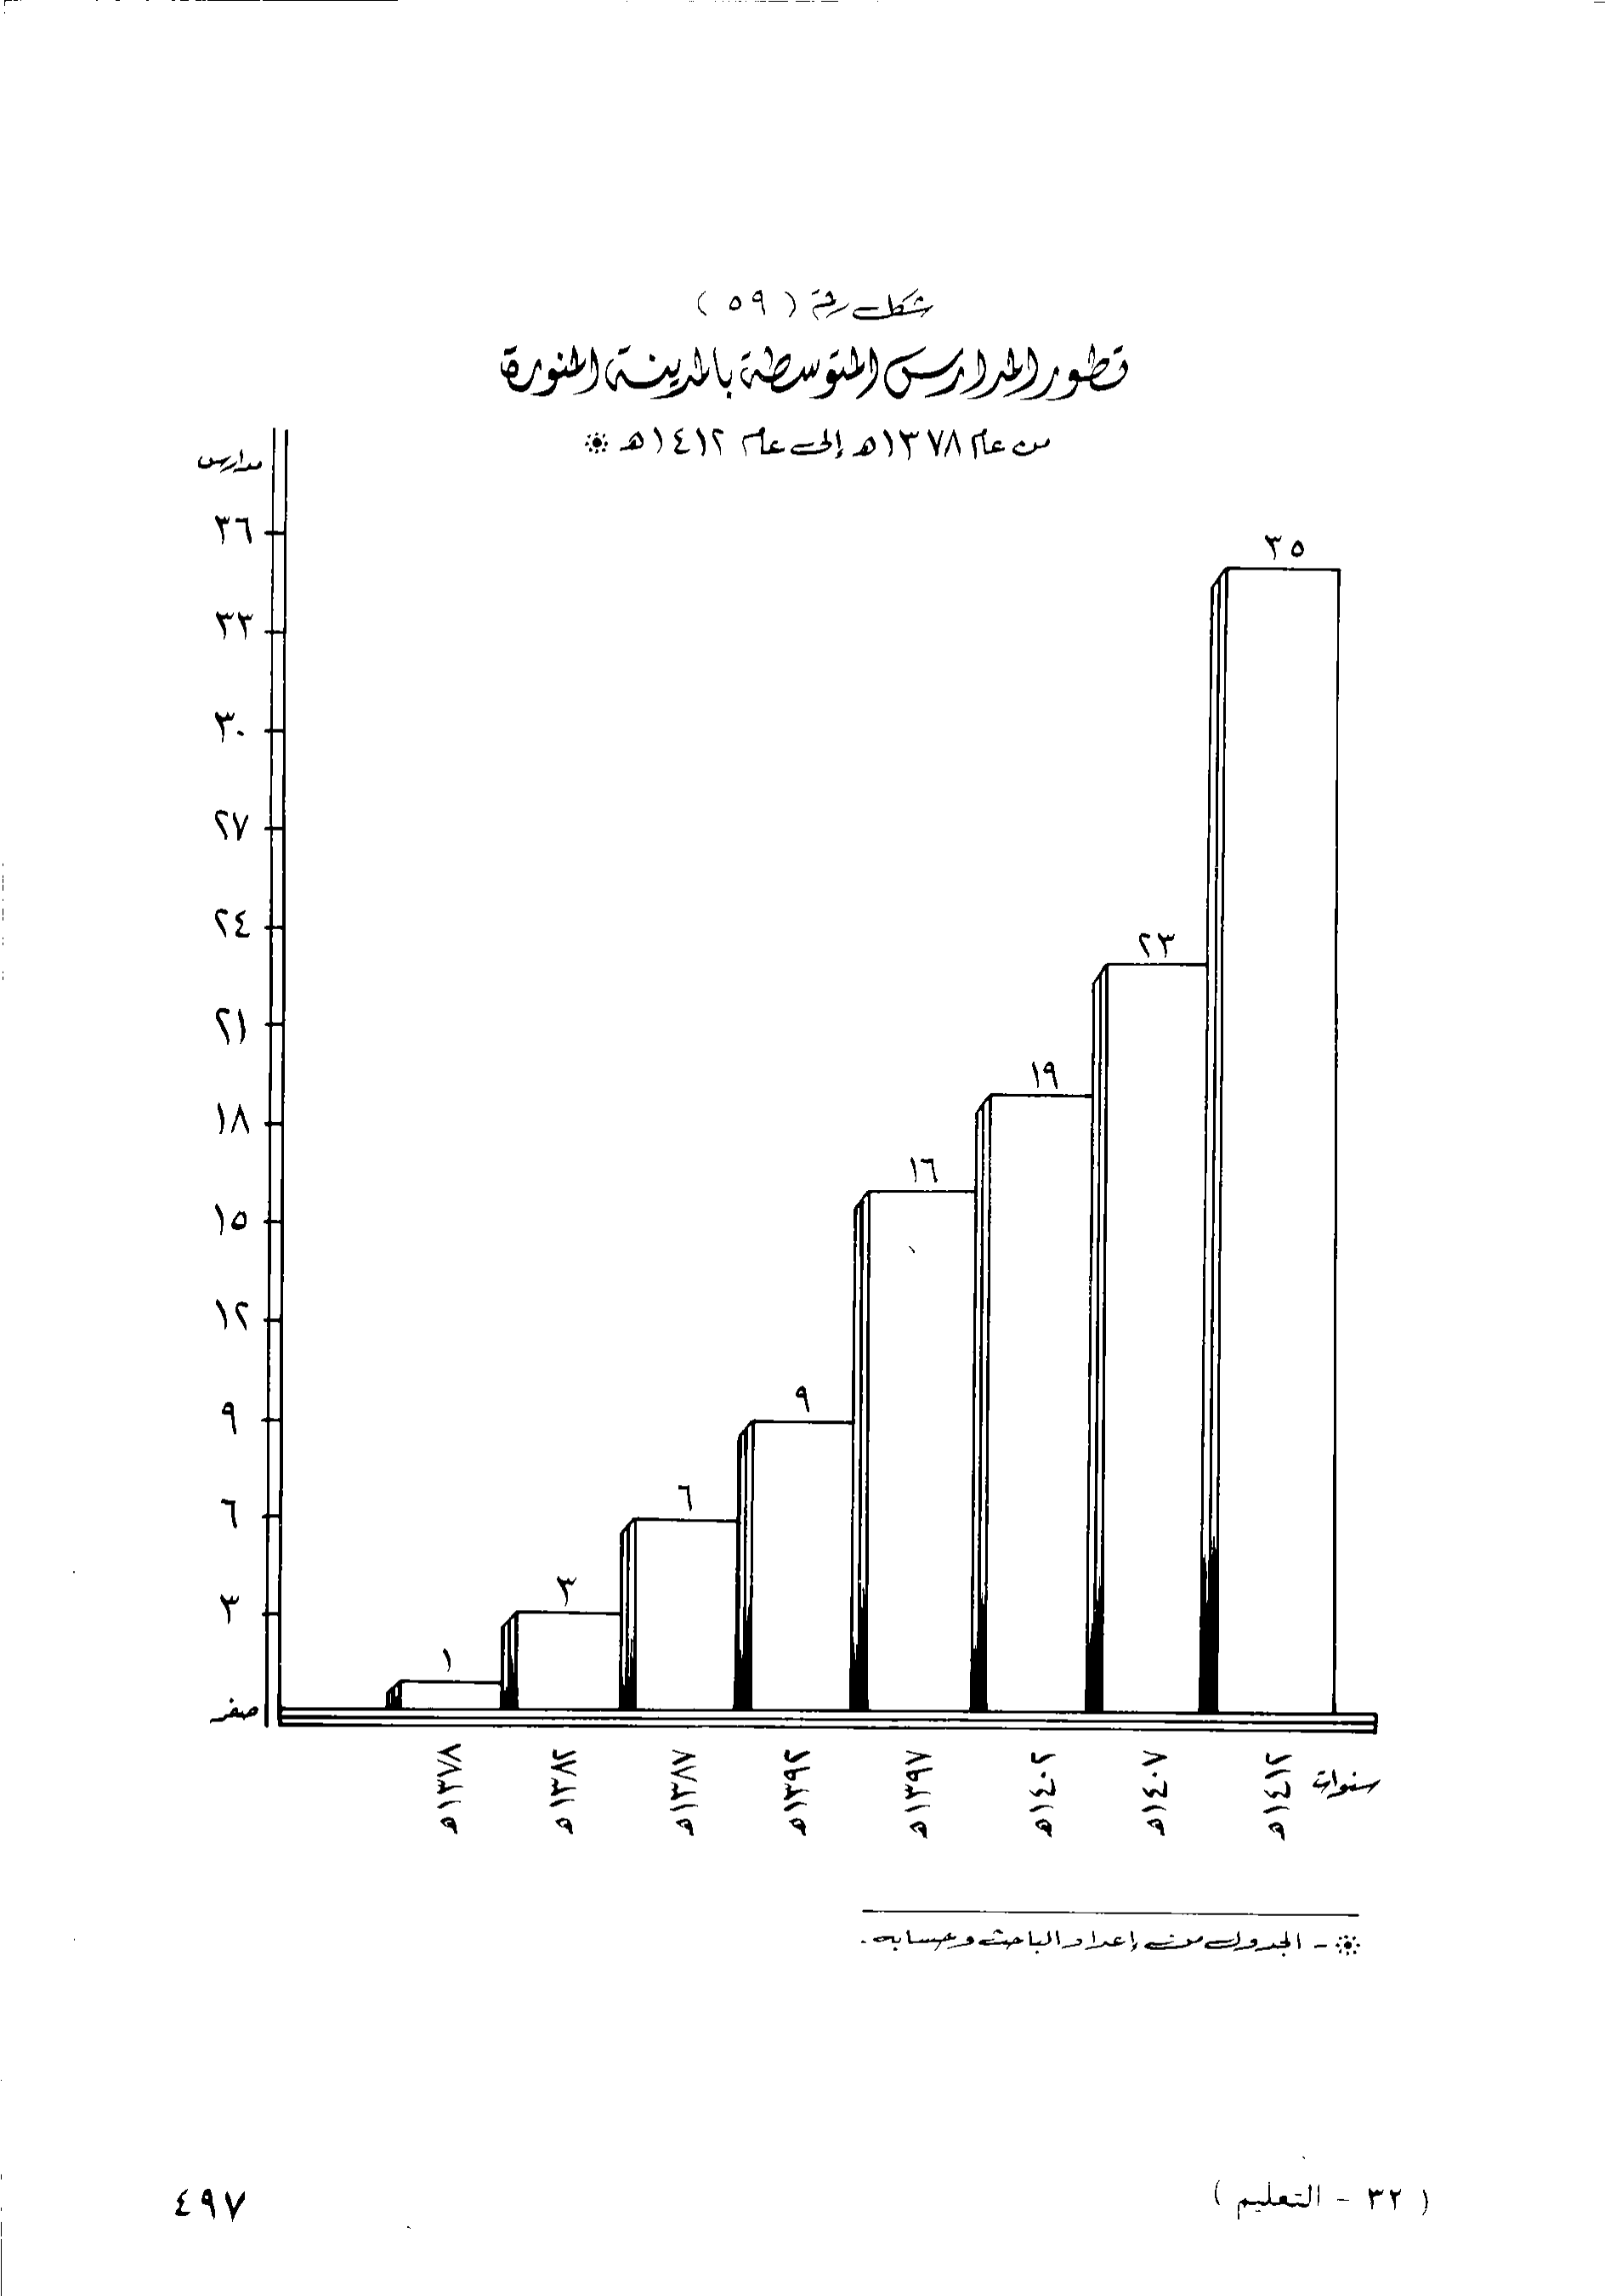 شكل رقم ( ٥٩ )
تطور المدارس المتوسطة بالمدينة المنورة
من عام ١٣٧٨هـ إلى عام ١٤١٢هـ *
مدارس
٣٦
٣٣
٣٠
٢٧
٢٤
٢١
١٨
١٥
١٢
٩
٦
٣
صفر
١
٣
٦
٩
١٦
١٩
٢٣
٣٥
١٣٧٨هـ
١٣٨٢هـ
١٣٨٧هـ
١٣٩٢هـ
١٣٩٧هـ
١٤٠٢هـ
١٤٠٧هـ
١٤١٢هـ
سنوات
* - الجدول من إعداد الباحث وحسابه .
( ٣٢ - التعليم )
٤٩٧